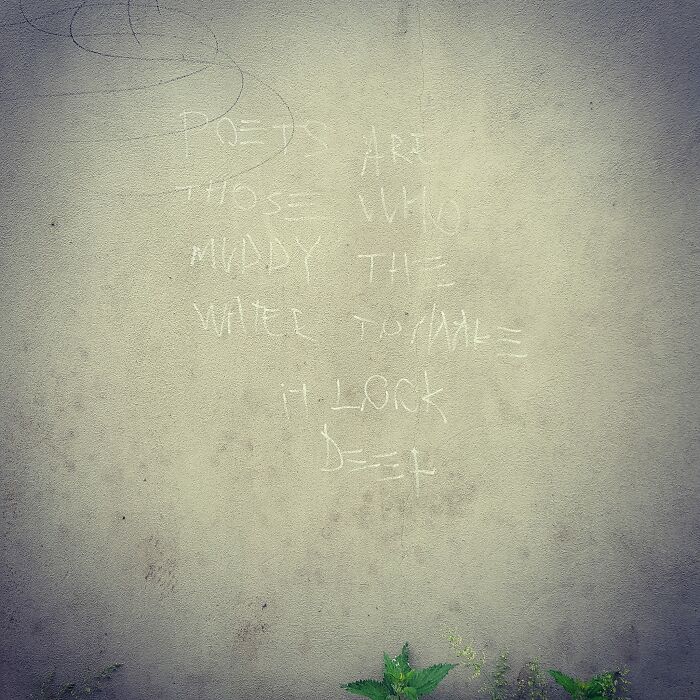 POETS ARE
THOSE WHO
MUDDY THE
WATER TO MAKE
it LOOK
DEEP